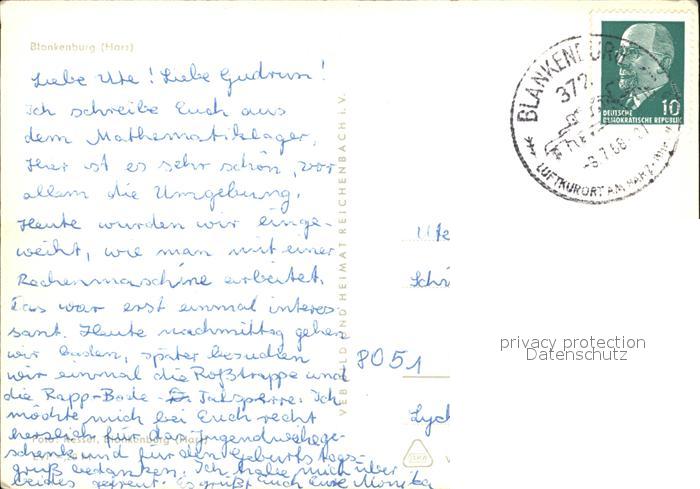 Blankenburg (Harz)
Liebe Ute! Liebe Gudrun!
Ich schreibe Euch aus
dem Mathematiklager,
Hier ist es sehr schön, vor
allem die Umgebung.
Heute wurden wir einge-
weiht, wie man mit einer
Rechenmaschine arbeitet.
Das war erst einmal interes-
sant. Heute nachmittag gehen
wir baden, später besuchen
wir einmal die Roßtrappe und
die Rapp-Bode- Talsperre. Ich
möchte mich bei Euch recht
herzlich für das Jugendweihege-
schenk und für den Geburtstags-
gruß bedanken. Ich habe mich über
beides gefreut. Es grüßt auch Eure Monika
Foto: Kessler, Blankenburg (Harz)
VEB BILD UND HEIMAT REICHENBACH i. V.
BLANKENBURG
372
-8.7.68.
LUFTKURORT AM HARZ
10
DEUTSCHE
DEMOKRATISCHE REPUBLIK
Ute
Schr
8051
Lyck
privacy protection
Datenschutz